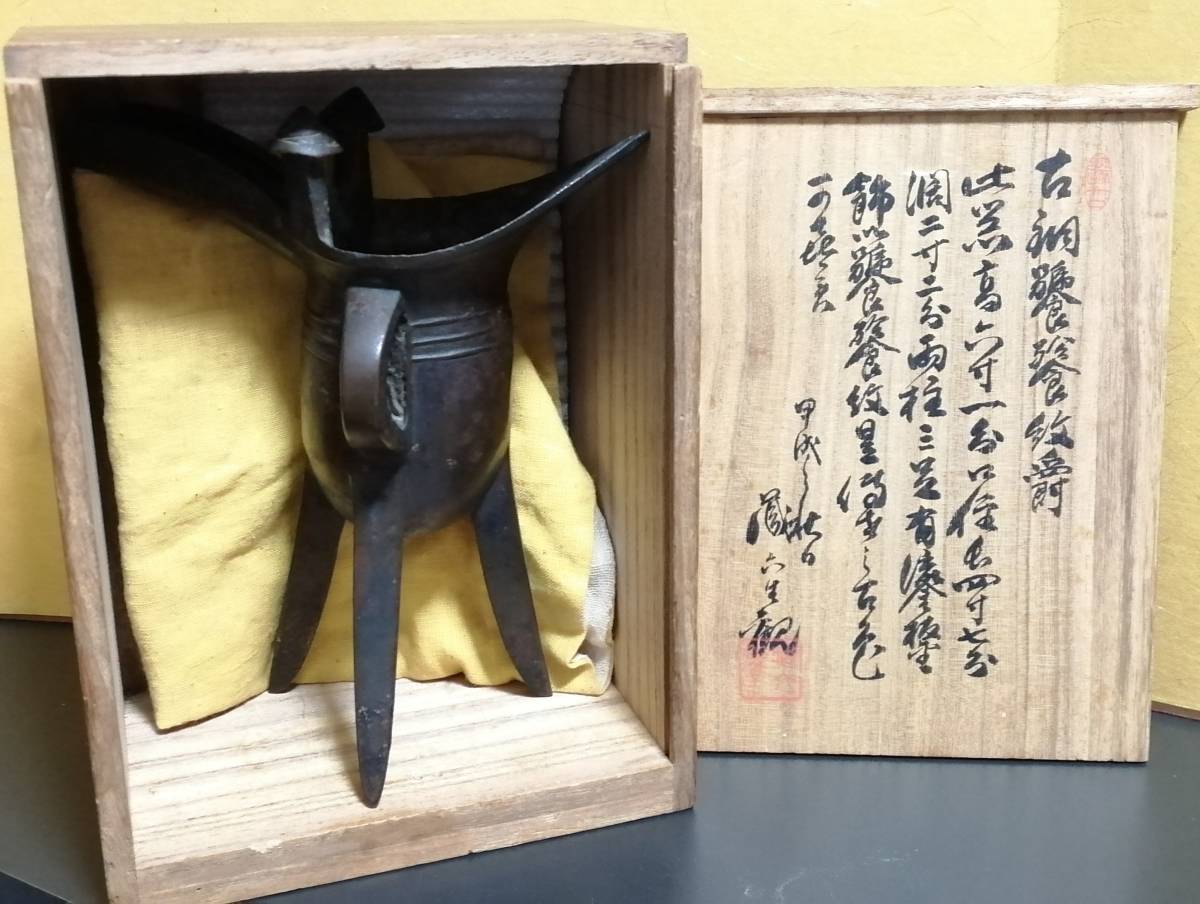 古銅饕餮紋爵
此器高六寸一分口徑長四寸七分
濶二寸二分兩柱三足有鋬
飾以饕餮紋
可喜
甲戌之秋日
六生觀